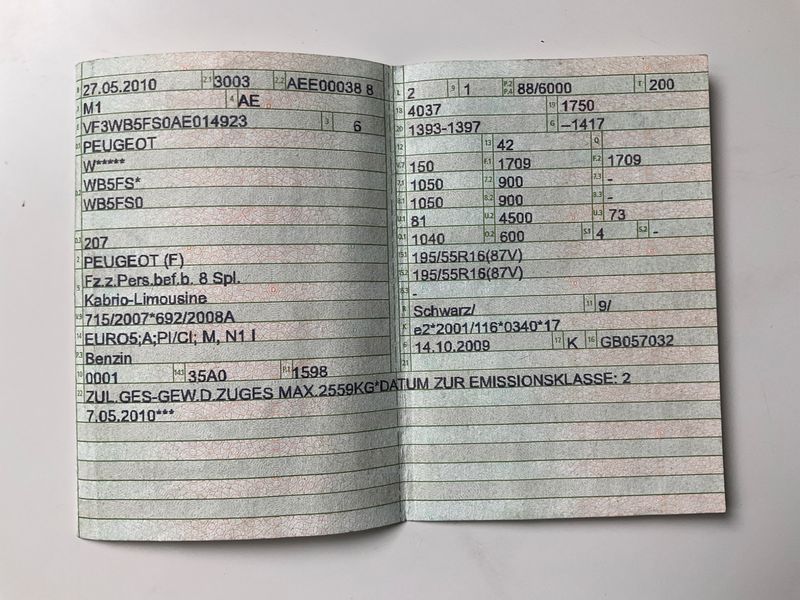 B 27.05.2010 2.1 3003 2.2 AEE00038 8
J M1 4 AE
E VF3WB5FS0AE014923 3 6
D.1 PEUGEOT
W*****
D.2 WB5FS*
WB5FS0
D.3 207
2 PEUGEOT (F)
5 Fz.z.Pers.bef.b. 8 Spl.
Kabrio-Limousine
V.9 715/2007*692/2008A
14 EURO5;A;PI/CI; M, N1 I
P.3 Benzin
10 0001 14.1 35A0 P.1 1598
L 2 9 1 P.2 P.4 88/6000 T 200
18 4037 19 1750
20 1393-1397 G –1417
12 13 42 Q
V.7 150 F.1 1709 F.2 1709
7.1 1050 7.2 900 7.3 -
8.1 1050 8.2 900 8.3 -
U.1 81 U.2 4500 U.3 73
O.1 1040 O.2 600 S.1 4 S.2 -
15.1 195/55R16(87V)
15.2 195/55R16(87V)
15.3 -
R Schwarz/ 11 9/
K e2*2001/116*0340*17
6 14.10.2009 17 K 16 GB057032
21
22 ZUL.GES-GEW.D.ZUGES MAX.2559KG*DATUM ZUR EMISSIONSKLASSE: 2
7.05.2010***